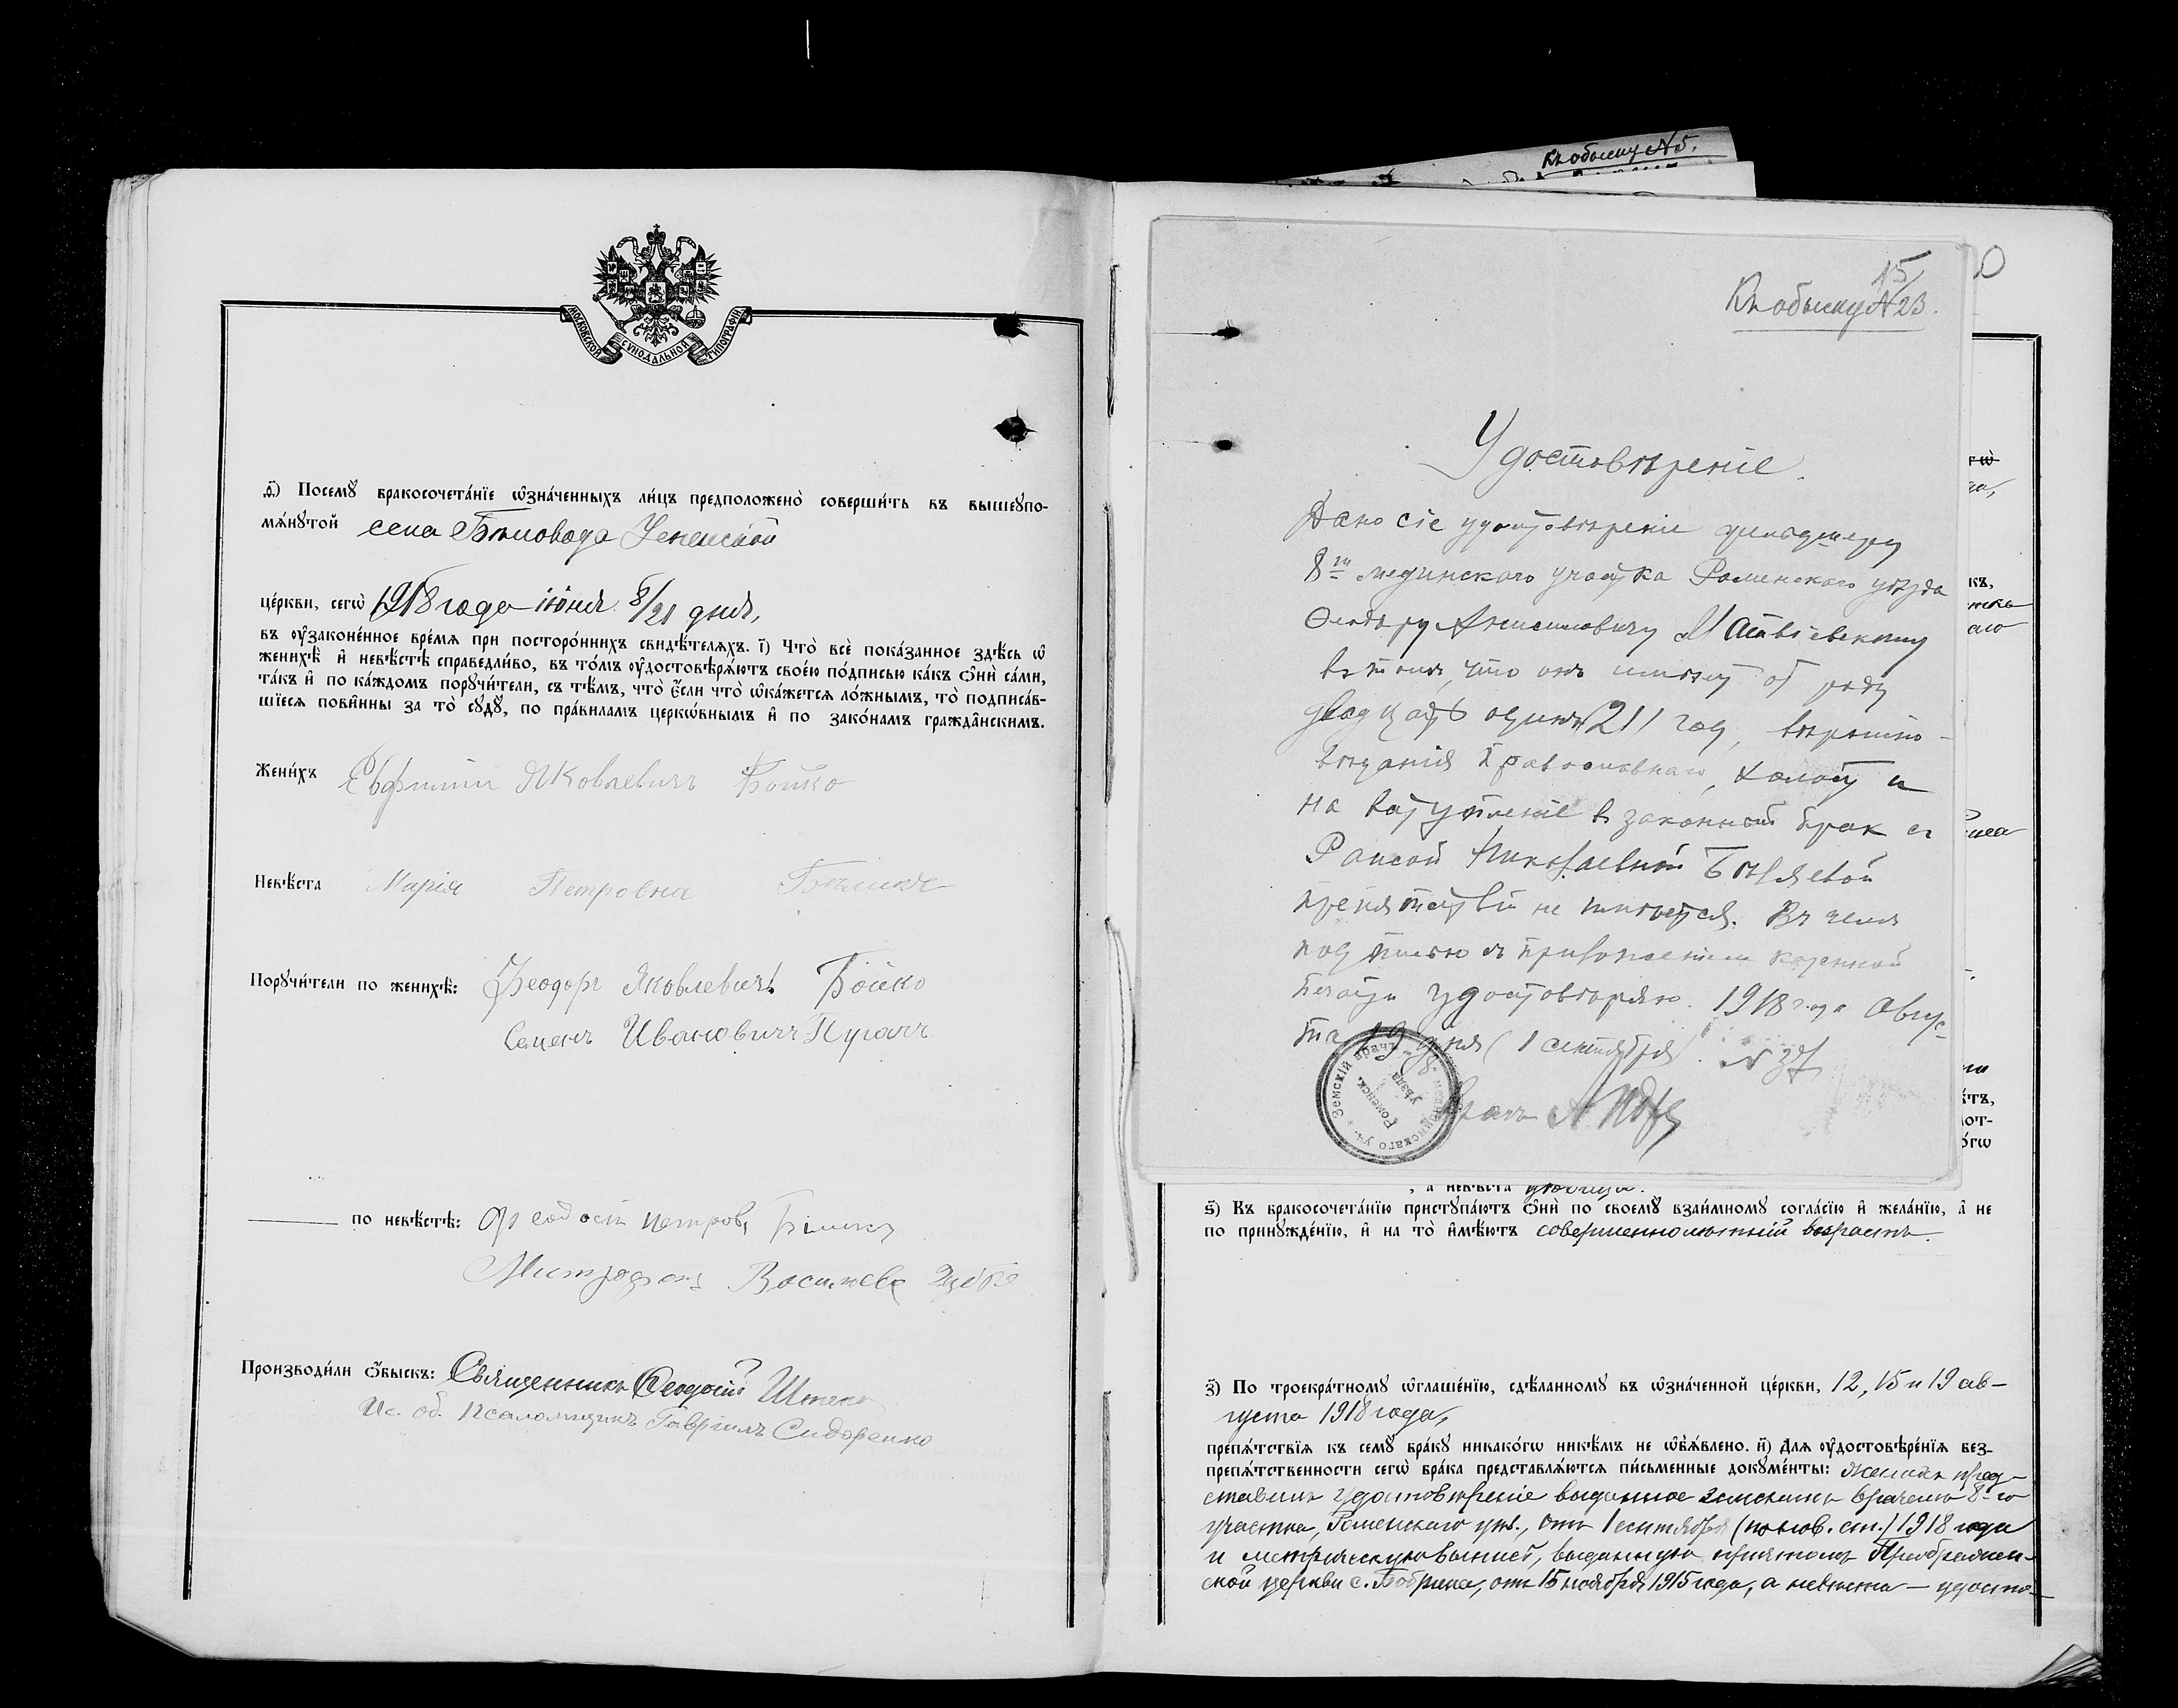 Къ обыску № 5.
МОСКОВСКОЙ СѴНОДАЛЬНОЙ ТИПОГРАФІИ
д҃) Посемꙋ̀ бракосочета́нїе ѡ҆зна́ченныхъ ли́цъ предположено̀ соверши́ть въ вышеꙋпо-
мѧ́нꙋтой села Бѣловода Успенской
це́ркви, сегѡ̀ 1918 года іюня 8/21 дня,
въ ᲂу҆законе́нное вре́мѧ при посторо́ннихъ свидѣ́телѧхъ. і҃) Что̀ всѐ пока́занное здѣ́сь ѡ҆
женихѣ̀ и҆ невѣ́стѣ справедли́во, въ то́мъ ᲂу҆достовѣрѧ́ютъ свое́ю по́дписью ка́къ ѻ҆нѝ са́ми,
та́къ и҆ по ка́ждомъ порꙋчи́тели, съ тѣ́мъ, что̀ є҆́сли что̀ ѡ҆ка́жется ло́жнымъ, то̀ подписа́в-
шїеся пови́нны за то̀ сꙋдꙋ̀, по пра́виламъ церко́внымъ и҆ по зако́намъ гражда́нскимъ.
Жени́хъ Евфимій Яковлевичъ Бойко
Невѣ́ста Марія Петровна Бѣлика
Порꙋчи́тели по женихѣ̀: Феодоръ Яковлевичъ Бойко
Семенъ Ивановичъ Пугачъ
по невѣ́стѣ: Феодосій Петровъ
Митрофанъ Васильевъ
Производи́ли ѻ҆́быскъ: Священникъ Феодосій
Ис. об. Псаломщикъ Гавріилъ Сидоренко
15
Къ обыску № 23.
Удостовѣреніе.
Дано сіе удостовѣреніе фельдшеру
8го медицинскаго участка Роменскаго уѣзда
Ѳеодору Анисимовичу Матвіевскому
въ томъ, что онъ имѣетъ от роду
двадцать одинъ /21/ год, вѣроиспо-
вѣданія Православнаго, холост и
на вступленіе в законный брак съ
Раисой Николаевной Бѣляевой
препятствій не имѣется. Въ чемъ
подписью съ приложеніем казенной
печати удостовѣряю. 1918 года Авгус-
та 19 дня (1 сентября). №
Врачъ
Земскій врачъ 8 медицинскаго уч. Роменск. уѣзда
, а҆ невѣ́ста дѣвица.
ѕ҃) Къ бракосочета́нїю пристꙋпа́ютъ ѻ҆нѝ по своемꙋ̀ взаи́мномꙋ согла́сїю и҆ жела́нїю, а҆ не
по принꙋжде́нїю, и҆ на то̀ и҆мѣ́ютъ совершеннолѣтній возрастъ.
з҃) По троекра́тномꙋ ѡ҆глаше́нїю, сдѣ́ланномꙋ въ ѡ҆зна́ченной це́ркви, 12, 15 и 19 ав-
густа 1918 года,
препѧ́тствїѧ къ семꙋ̀ бра́кꙋ никако́гѡ никѣ́мъ не ѡ҆б̾ѧ́влено. и҃) Для ᲂу҆достовѣре́нїѧ без-
препѧ́тственности сегѡ̀ бра́ка представлѧ́ются пи́сьменные докꙋме́нты: женихъ пред-
ставилъ удостовѣреніе выданное земскимъ врачемъ 8-го
участка, Роменскаго уѣз., отъ 1 сентября (по нов. ст.) 1918 года
и метрическую выпись, выданную причтомъ Преображен-
ской церкви с. Бобрика, отъ 15 ноября 1915 года, а невѣста — удосто-